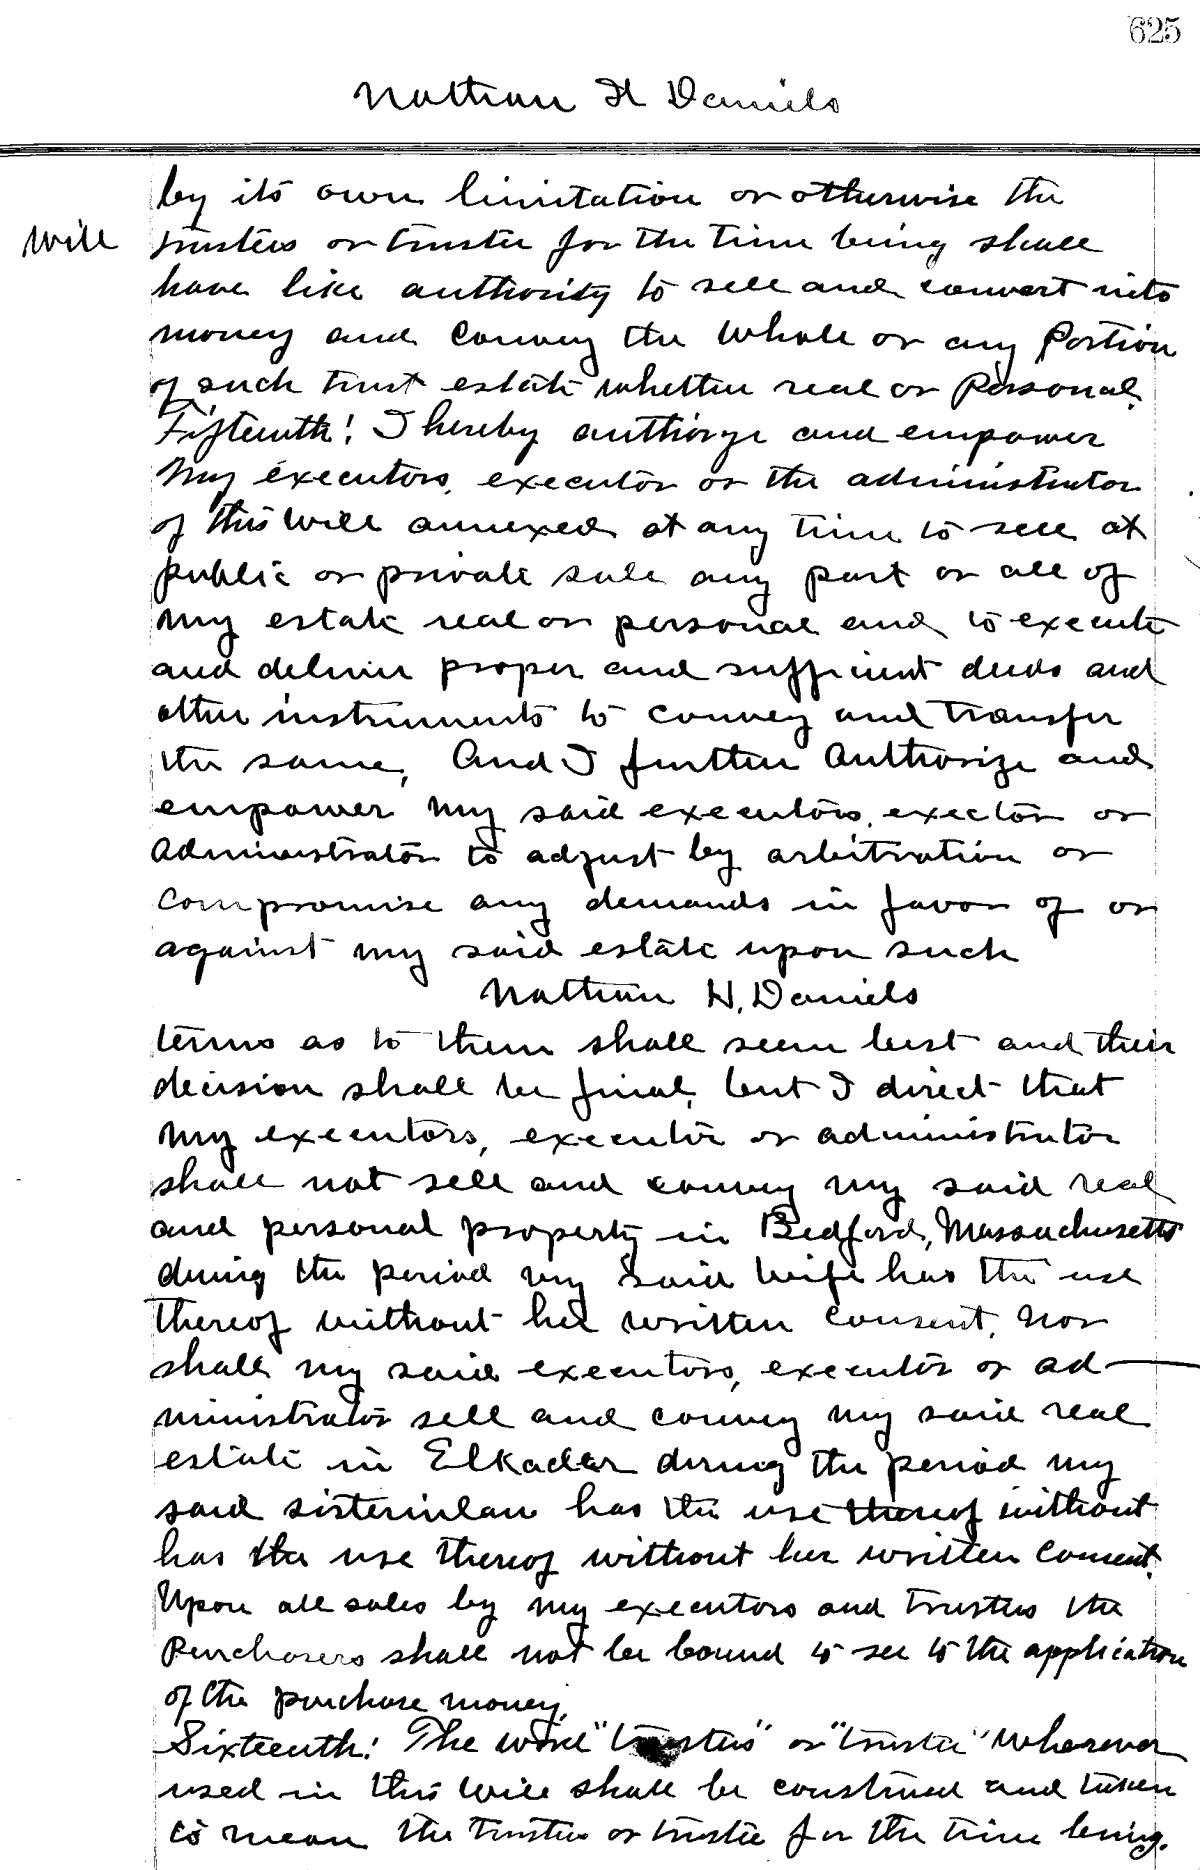 625
Nathan H Daniels
by its own limitation or otherwise the
Will
trustees or trustee for the time being shall
have like authority to sell and convert into
money and convey the whole or any portion
of such trust estate whether real or personal.
Fifteenth: I hereby authorize and empower
my executors, executor or the administrator
of this will annexed at any time to sell at
public or private sale any part or all of
my estate real or personal and to execute
and deliver proper and sufficient deeds and
other instruments to convey and transfer
the same, And I further authorize and
empower my said executors, exector or
administrator to adjust by arbitration or
compromise any demands in favor of or
against my said estate upon such
Nathan H. Daniels
terms as to them shall seem best and their
decision shall be final, but I direct that
my executors, executor or administrator
shall not sell and convey my said real
and personal property in Bedford, Massachusetts
during the period my said wife has the use
thereof without her written consent, nor
shall my said executors, executor or ad-
ministrator sell and convey my said real
estate in Elkader during the period my
said sisterinlaw has the use thereof without
has the use thereof without her written consent.
Upon all sales by my executors and trustees the
purchasers shall not be bound to see to the application
of the purchase money.
Sixteenth: The word "trustees" or "trustee" wherever
used in this will shall be construed and taken
to mean the trustees or trustee for the time being.